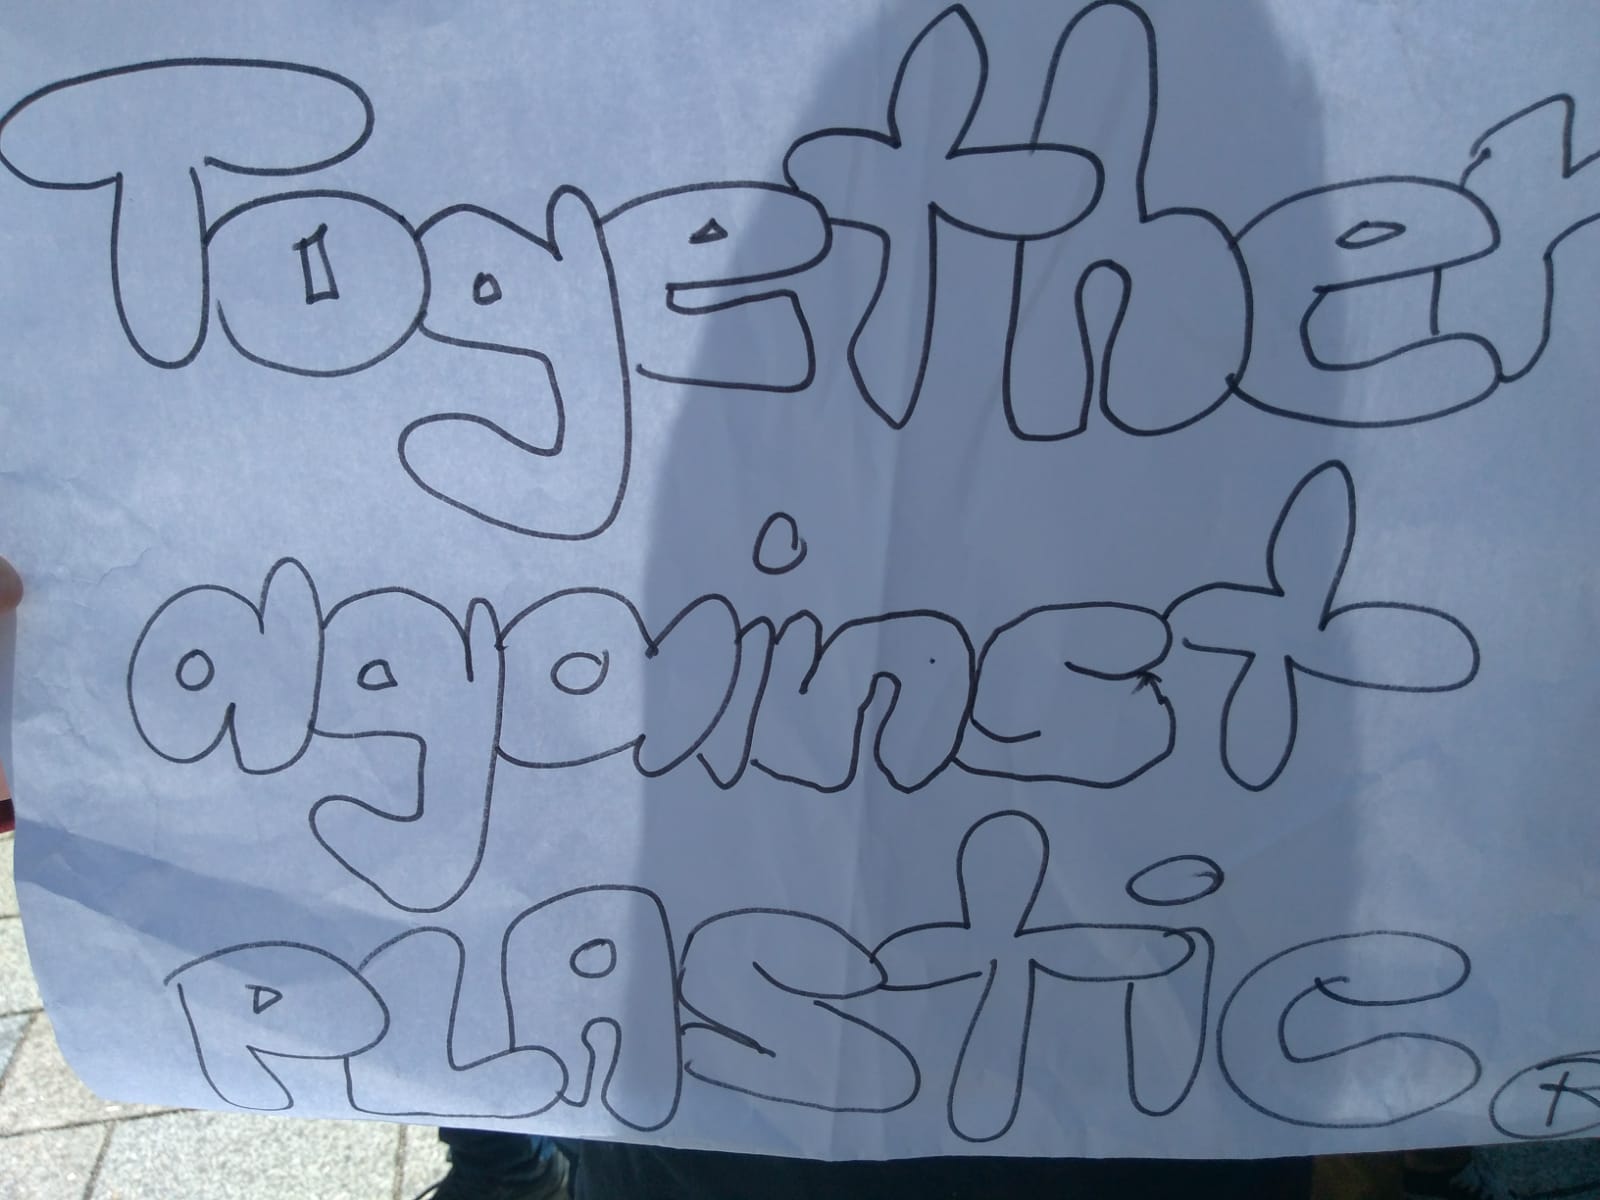 Together
against
PLAStiC